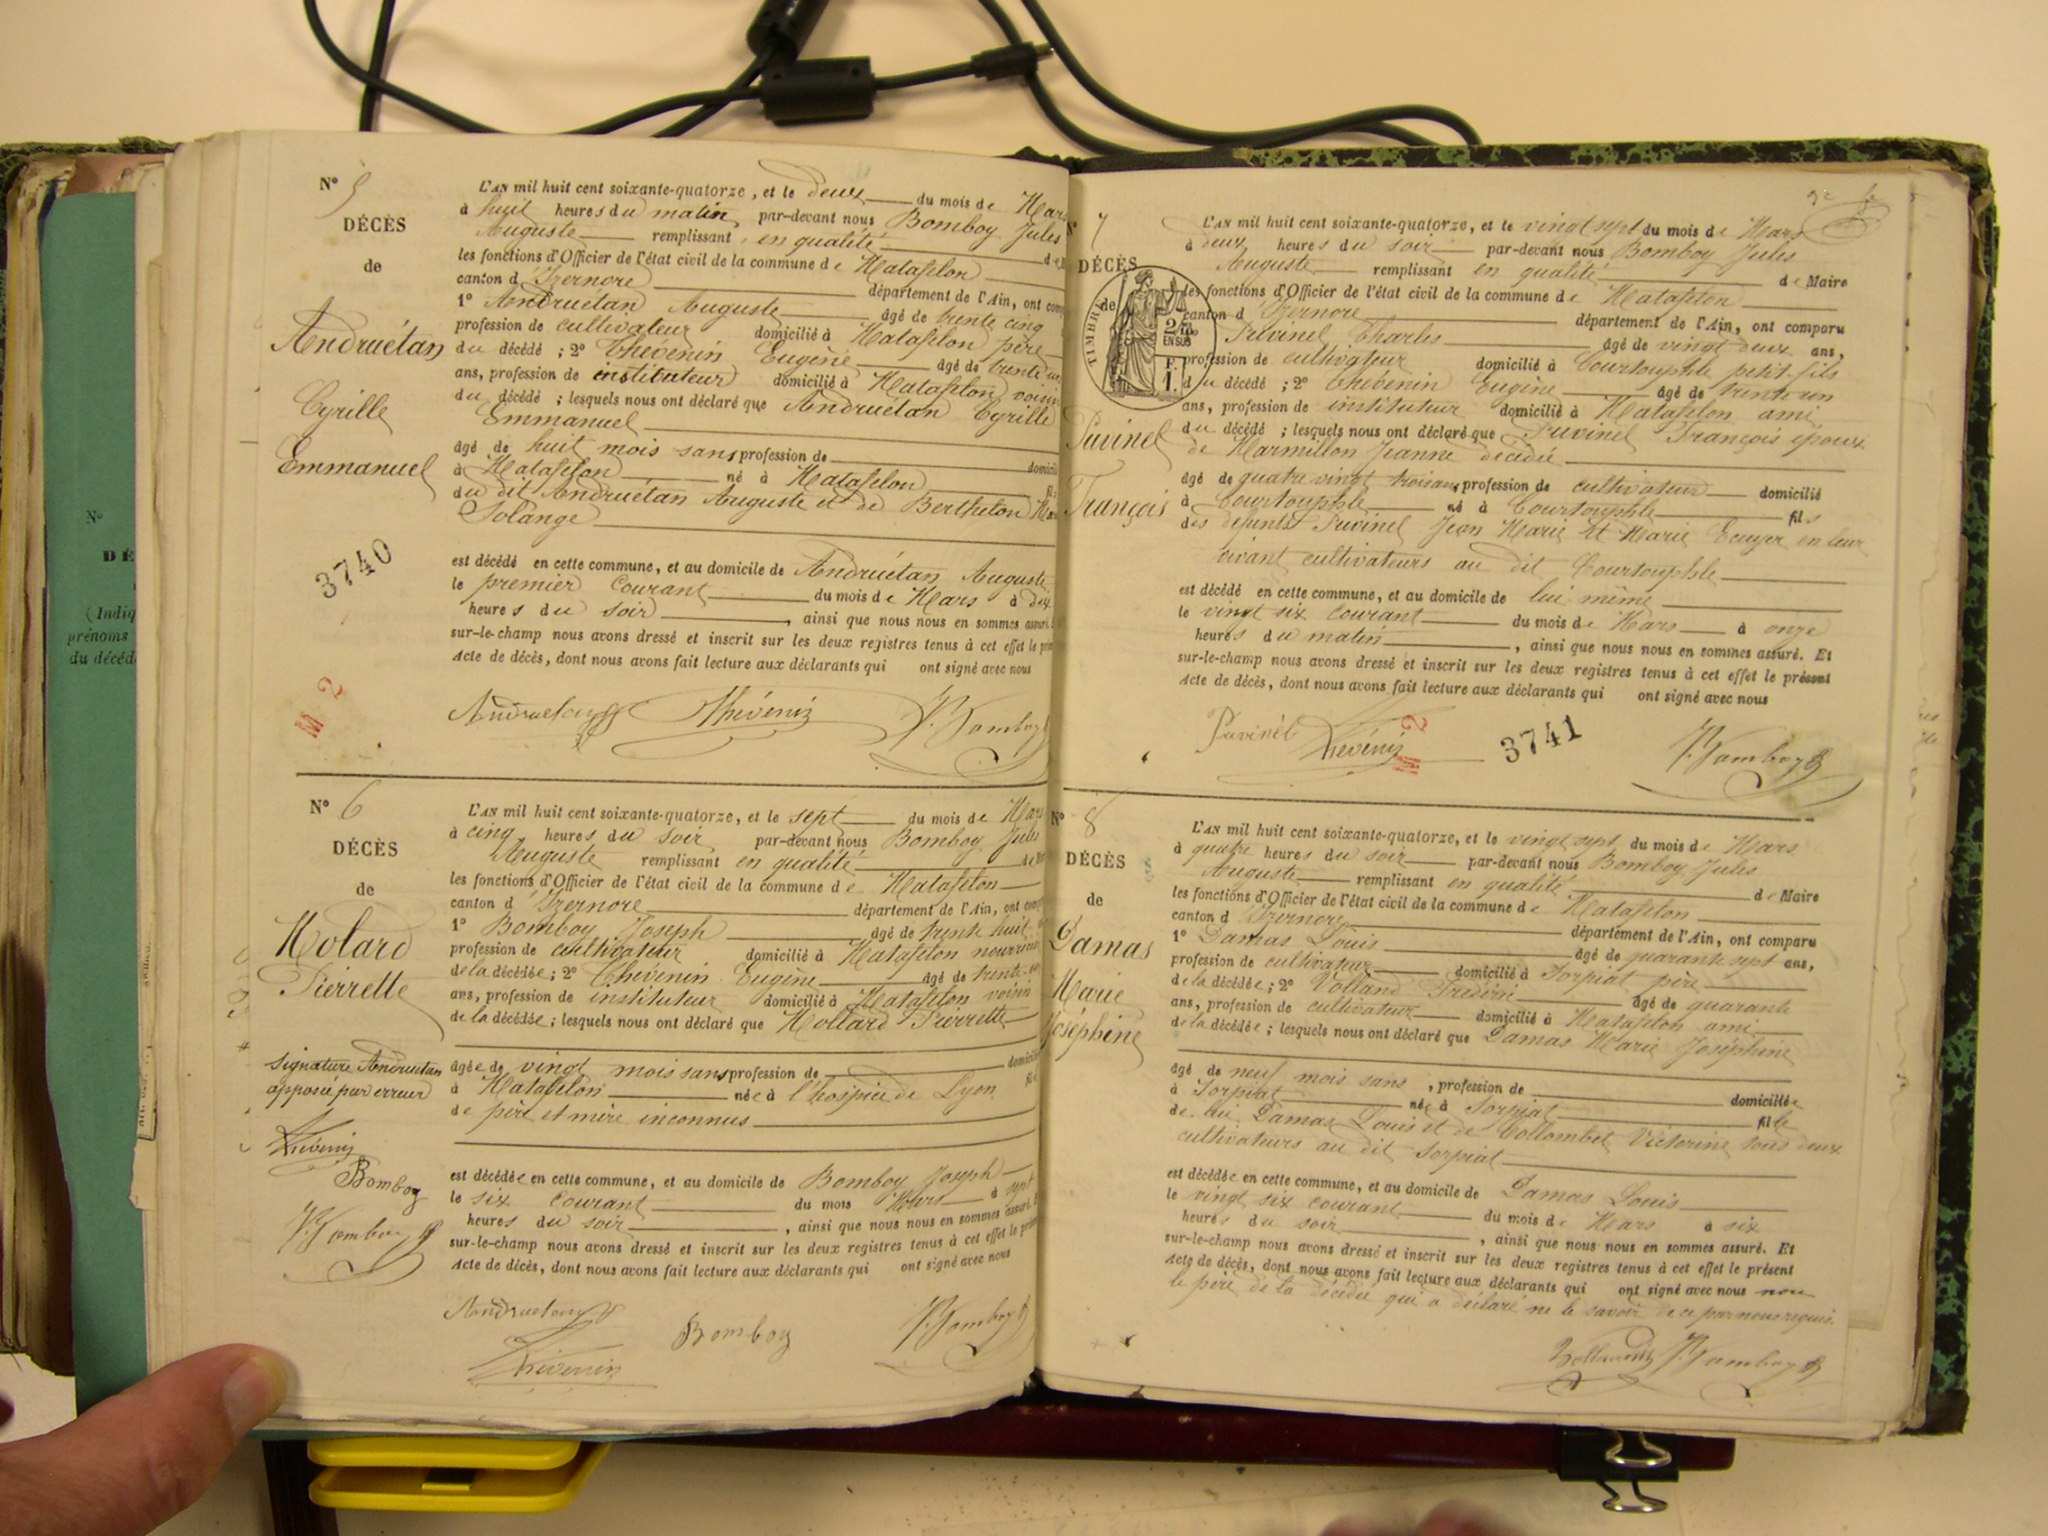 N° 5
DÉCÈS
de
Andruétan
Cyrille
Emmanuel
3740
M 2
L'AN mil huit cent soixante-quatorze, et le deux du mois de Mars
à huit heures du matin par-devant nous Bomboy Jules
Auguste remplissant en qualité de
les fonctions d'Officier de l'état civil de la commune de Matafelon
canton d'Izernore département de l'Ain, ont
1° Andruétan Auguste âgé de trente cinq
profession de cultivateur domicilié à Matafelon père
du décédé ; 2° Thévenin Eugène âgé de trente un
ans, profession de instituteur domicilié à Matafelon voisin
du décédé ; lesquels nous ont déclaré que Andruétan Cyrille
Emmanuel
âgé de huit mois sans profession de
à Matafelon né à Matafelon
du dit Andruétan Auguste et de Berthelon
Solange
est décédé en cette commune, et au domicile de Andruétan Auguste
le premier courant du mois de Mars à dix
heures du soir , ainsi que nous nous en sommes assuré.
sur-le-champ nous avons dressé et inscrit sur les deux registres tenus à cet effet le
Acte de décès, dont nous avons fait lecture aux déclarants qui ont signé avec nous
Andruetan Thévenin Bomboy
N° 6
DÉCÈS
de
Molard
Pierrette
Signature Andruetan
apposée par erreur
Thévenin
Bomboy
Bomboy
L'AN mil huit cent soixante-quatorze, et le sept du mois de Mars
à cinq heures du soir par-devant nous Bomboy Jules
Auguste remplissant en qualité
les fonctions d'Officier de l'état civil de la commune de Matafelon
canton d'Izernore département de l'Ain, ont
1° Bomboy Joseph âgé de trente huit
profession de cultivateur domicilié à Matafelon nourricier
de la décédée ; 2° Thevenin Eugène âgé de trente un
ans, profession de instituteur domicilié à Matafelon voisin
de la décédée ; lesquels nous ont déclaré que Mollard Pierrette
âgée de vingt mois sans profession de
à Matafelon née à l'hospice de Lyon
de père et mère inconnus
est décédée en cette commune, et au domicile de Bomboy Joseph
le six courant du mois Mars à sept
heures du soir , ainsi que nous nous en sommes assuré.
sur-le-champ nous avons dressé et inscrit sur les deux registres tenus à cet effet le
Acte de décès, dont nous avons fait lecture aux déclarants qui ont signé avec nous
Andruetan
Thévenin Bomboy Bomboy
N° 7
DÉCÈS
de
TIMBRE
2/10
EN SUS
F.
1.
Puvinel
François
L'AN mil huit cent soixante-quatorze, et le vingt sept du mois de Mars
à deux heures du soir par-devant nous Bomboy Jules
Auguste remplissant en qualité de Maire
les fonctions d'Officier de l'état civil de la commune de Matafelon
canton d'Izernore département de l'Ain, ont comparu
Puvinel Charles âgé de vingt deux ans,
profession de cultivateur domicilié à Courtouphle petit-fils
du décédé ; 2° Thévenin Eugène âgé de trente un
ans, profession de instituteur domicilié à Matafelon ami
du décédé ; lesquels nous ont déclaré que Puvinel François époux
de Marmillon Jeanne décédée
âgé de quatre vingt trois ans, profession de cultivateur domicilié
à Courtouphle né à Courtouphle fils
des défunts Puvinel Jean Marie et Marie Ecuyer en leur
vivant cultivateurs au dit Courtouphle
est décédé en cette commune, et au domicile de lui même
le vingt six courant du mois de Mars à onze
heures du matin , ainsi que nous nous en sommes assuré. Et
sur-le-champ nous avons dressé et inscrit sur les deux registres tenus à cet effet le présent
Acte de décès, dont nous avons fait lecture aux déclarants qui ont signé avec nous
Puvinel Thévenin M 2 3741 Bomboy
N° 8
DÉCÈS
de
Damas
Marie
Joséphine
L'AN mil huit cent soixante-quatorze, et le vingt sept du mois de Mars
à quatre heures du soir par-devant nous Bomboy Jules
Auguste remplissant en qualité de Maire
les fonctions d'Officier de l'état civil de la commune de Matafelon
canton d'Izernore département de l'Ain, ont comparu
1° Damas Louis âgé de quarante sept ans,
profession de cultivateur domicilié à Sorpiat père
de la décédée ; 2° Volland Frédéric âgé de quarante
ans, profession de cultivateur domicilié à Matafelon ami
de la décédée ; lesquels nous ont déclaré que Damas Marie Joséphine
âgé de neuf mois sans , profession de
à Sorpiat née à Sorpiat domiciliée
de lui Damas Louis et de Collombet Victorine tous deux fille
cultivateurs au dit Sorpiat
est décédée en cette commune, et au domicile de Damas Louis
le vingt six courant du mois de Mars à six
heures du soir , ainsi que nous nous en sommes assuré. Et
sur-le-champ nous avons dressé et inscrit sur les deux registres tenus à cet effet le présent
Acte de décès, dont nous avons fait lecture aux déclarants qui ont signé avec nous non
le père de la décédée qui a déclaré ne le savoir de ce par nous requis.
Volland Bomboy
N°
DÉ
(Indiq
prénoms
du décéd